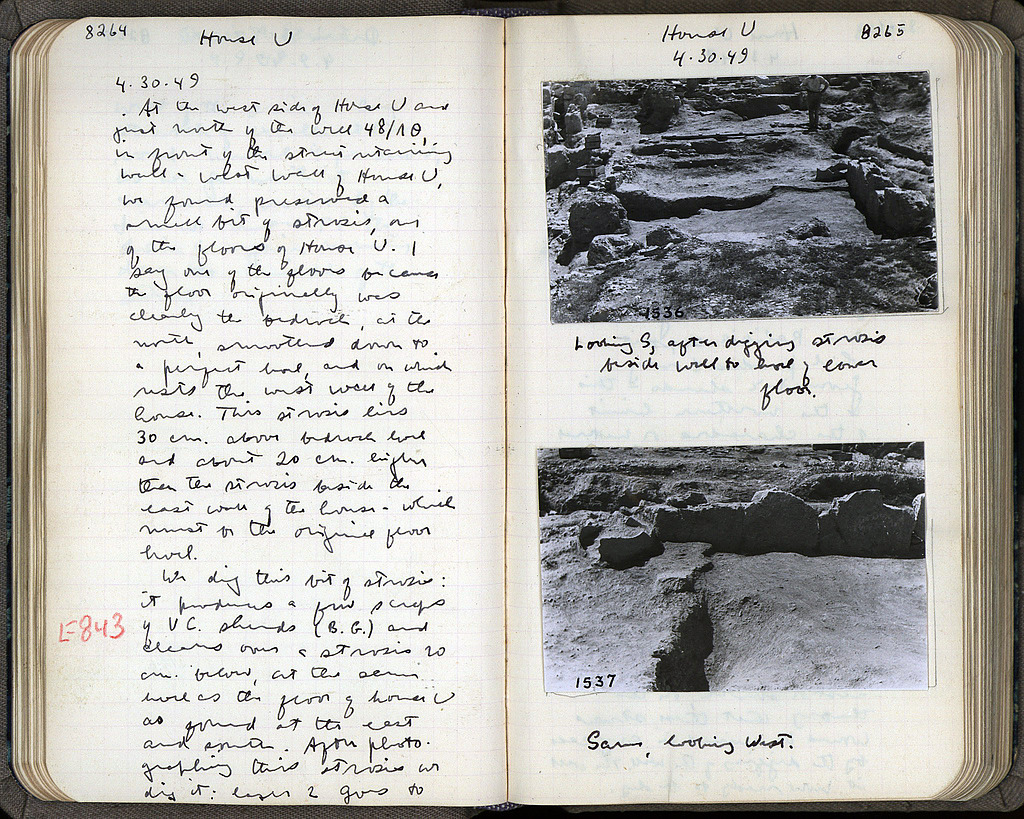 8264
House U
4.30.49
At the west side of House U and
just north of the well 48/18,
in front of the street retaining
wall - west wall of House U,
we found preserved a
small bit of strosis, one
of the floors of House U. I
say one of the floors because
the floor originally was
clearly the bedrock, at the
north, smoothed down to
a perfect level, and on which
rests the west wall of the
house. This strosis lies
30 cm. above bedrock level
and about 20 cm. higher
than the strosis beside the
east wall of the house - which
must be the original floor
level.
We dig this bit of strosis:
it produces a few scraps
of V C. sherds (B.G.) and
clears over a strosis 20
cm. below, at the same
level as the floor of House U
as found at the east
and south. After photo-
graphing this strosis we
dig it: layer 2 goes to
E843
House U
8265
4.30.49
1536
Looking S, after digging strosis
beside well to level of lower
floor.
1537
Same, looking West.